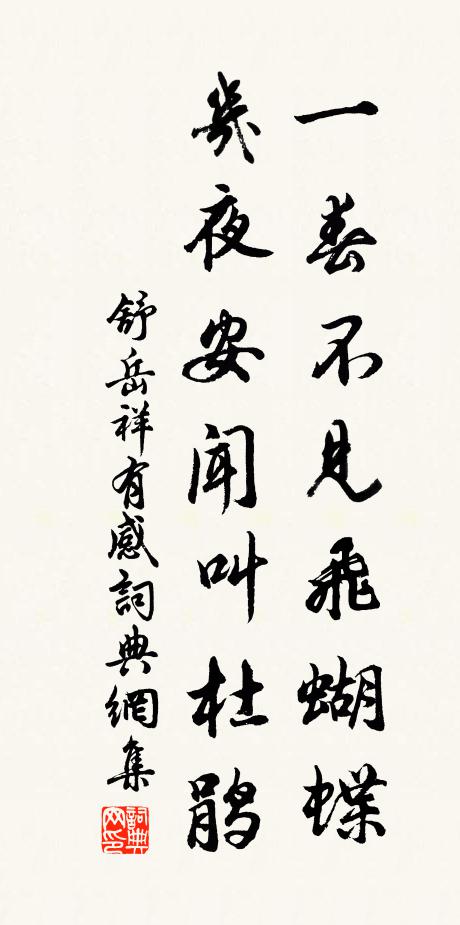 一春不見飛蝴蝶
幾夜安聞叫杜鵑
舒岳祥有感詞典網集
詞典
网印